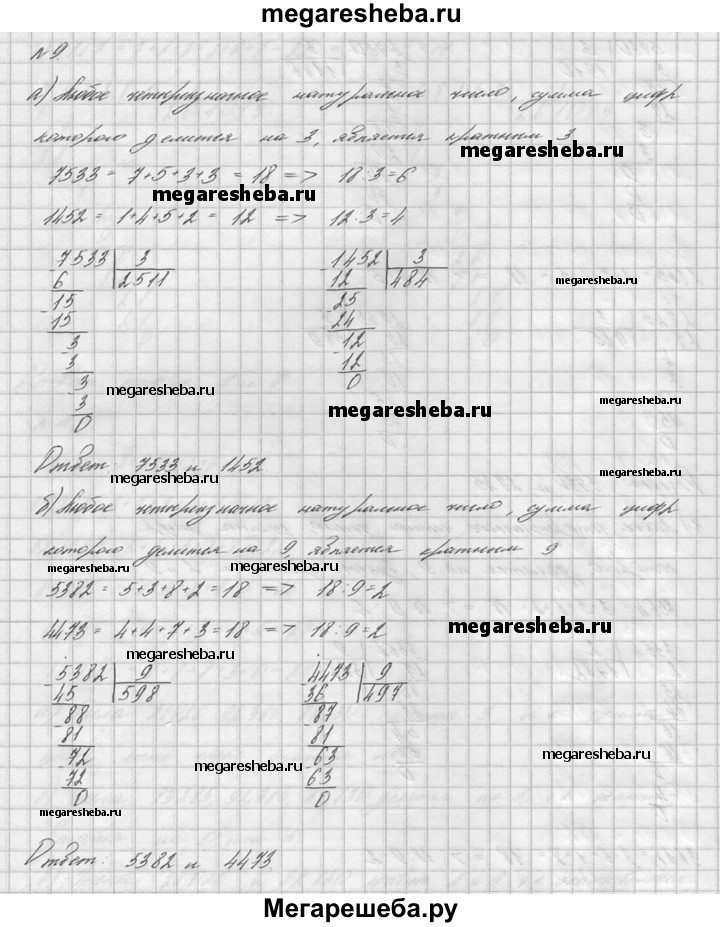 megaresheba.ru
№9.
а) Любое четырехзначное натуральное число, сумма цифр
которого делится на 3, является кратным 3
megaresheba.ru
7533 = 7+5+3+3 = 18 => 18:3=6
megaresheba.ru
1452 = 1+4+5+2 = 12 => 12:3=4
-7533 | 3 -1452 | 3
6 2511 12 484
megaresheba.ru
-15 -25
15 24
-3 -12
3 12
-3 0
megaresheba.ru
3
megaresheba.ru
megaresheba.ru
0
Ответ: 7533 и 1452
megaresheba.ru
megaresheba.ru
б) Любое четырехзначное натуральное число, сумма цифр
которого делится на 9, является кратным 9
megaresheba.ru
megaresheba.ru
5382 = 5+3+8+2 = 18 => 18:9=2
4473 = 4+4+7+3=18 => 18:9=2
megaresheba.ru
megaresheba.ru
-5382 | 9 -4473 | 9
45 598 36 497
-88 -87
81 81
-72 -63
72 63
0 0
megaresheba.ru
megaresheba.ru
megaresheba.ru
Ответ: 5382 и 4473.
Мегарешеба.ру